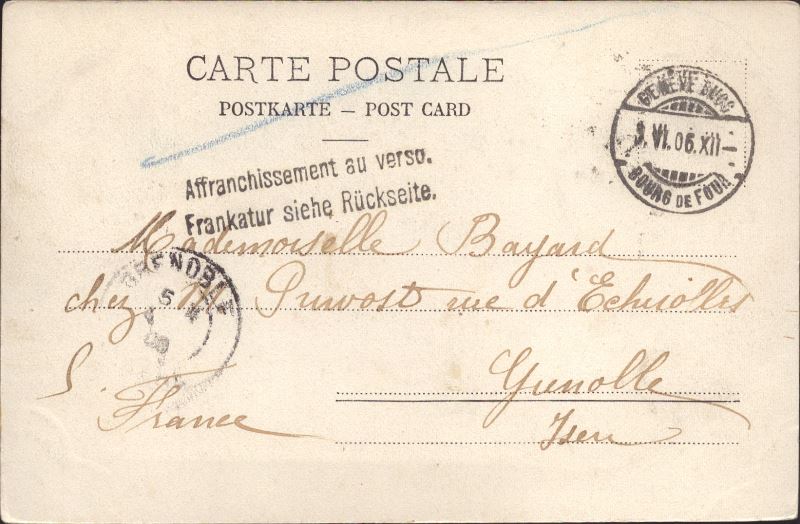 CARTE POSTALE
POSTKARTE – POST CARD
GENÈVE
VI.06.XII–
BOURG DE FOUR
Affranchissement au verso.
Frankatur siehe Rückseite.
Mademoiselle Bayard
GRENOBLE
chez M. Prevost rue d'Echirolles
Grenoble
France
Isère